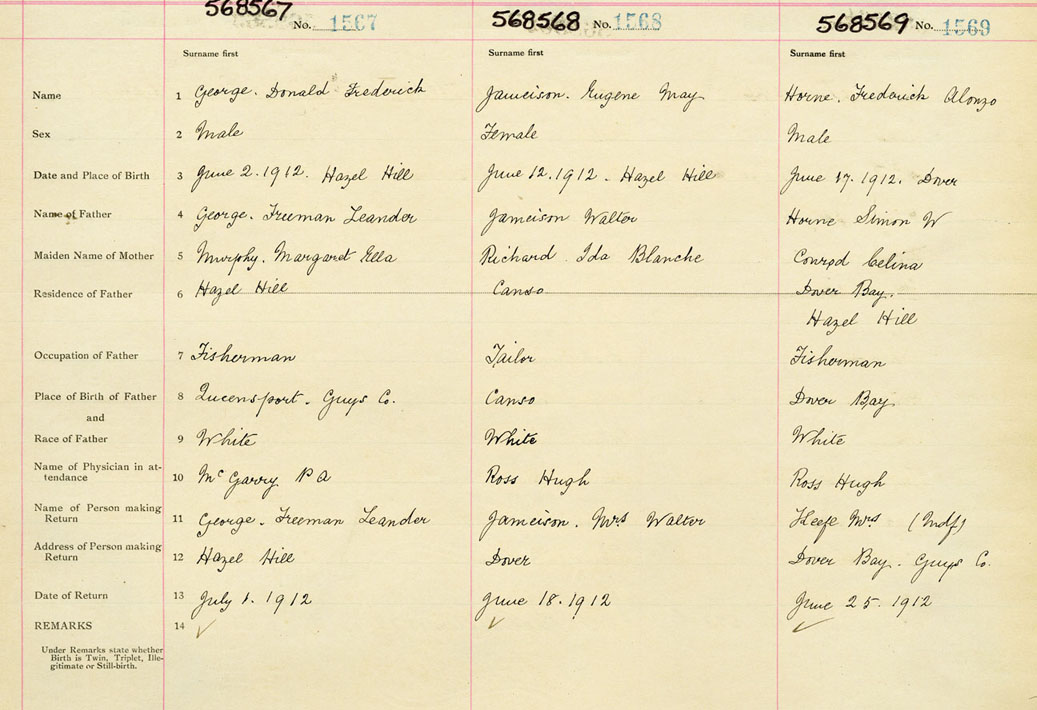 568567 No. 1567 568568 No. 1568 568569 No. 1569
Surname first Surname first Surname first
Name 1 George. Donald Frederick Jameison. Eugene May Horne. Frederick Alonzo
Sex 2 Male Female Male
Date and Place of Birth 3 June 2. 1912. Hazel Hill June 12. 1912. Hazel Hill June 17. 1912. Dover
Name of Father 4 George. Freeman Leander Jameison Walter Horne Simon W
Maiden Name of Mother 5 Murphy. Margaret Ella Richard Ida Blanche Conrod Celina
Residence of Father 6 Hazel Hill Canso Dover Bay.
Hazel Hill
Occupation of Father 7 Fisherman Tailor Fisherman
Place of Birth of Father 8 Queensport. Guys Co. Canso Dover Bay
and
Race of Father 9 White White White
Name of Physician in at-
tendance 10 McGarry P A Ross Hugh Ross Hugh
Name of Person making
Return 11 George. Freeman Leander Jameison. Mrs Walter Keefe Mrs (Mdf)
Address of Person making
Return 12 Hazel Hill Dover Dover Bay. Guys Co.
Date of Return 13 July 1. 1912 June 18. 1912 June 25. 1912
REMARKS 14
Under Remarks state whether
Birth is Twin, Triplet, Ille-
gitimate or Still-birth.